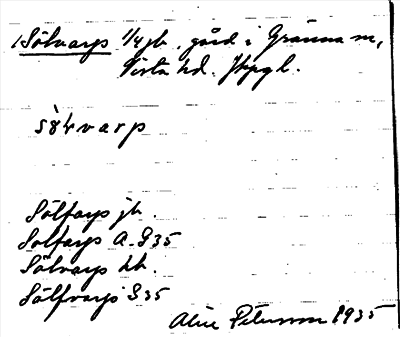 Sölvarp 1/4 jb, gård i Gränna sn,
Vista hd. Jkpg l.
sölvarp
Sölfarp jb.
Solfarp A. G35
Sölvarp kb.
Sölfvarp G35
Alice Petersson 1935